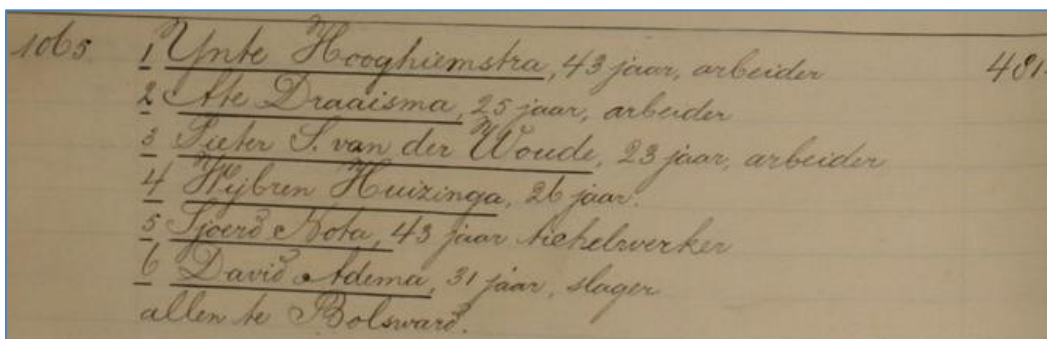 1065. 1 Ynte Hooghiemstra, 43 jaar, arbeider 481.
2 Ate Draaisma, 25 jaar, arbeider
3 Pieter S. van der Woude, 23 jaar, arbeider
4 Wijbren Huizinga, 26 jaar.
5 Sjoerd Nota, 43 jaar tichelwerker
6 David Adema, 31 jaar, slager
allen te Bolsward.